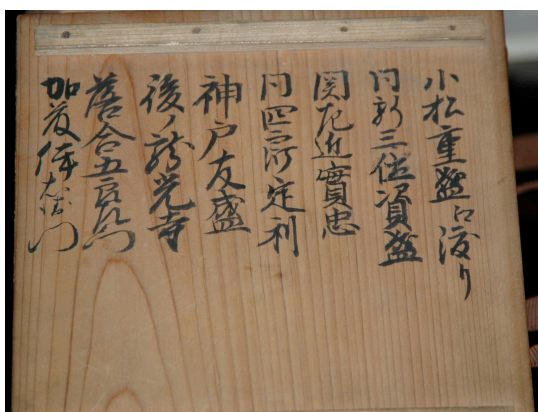 小松重盛ヨリ渡り
同新三位資盛
関左近實忠
同四郎定利
神戸友盛
後ノ龍光寺
落合五郎兵衛門
加藤伴左衛門